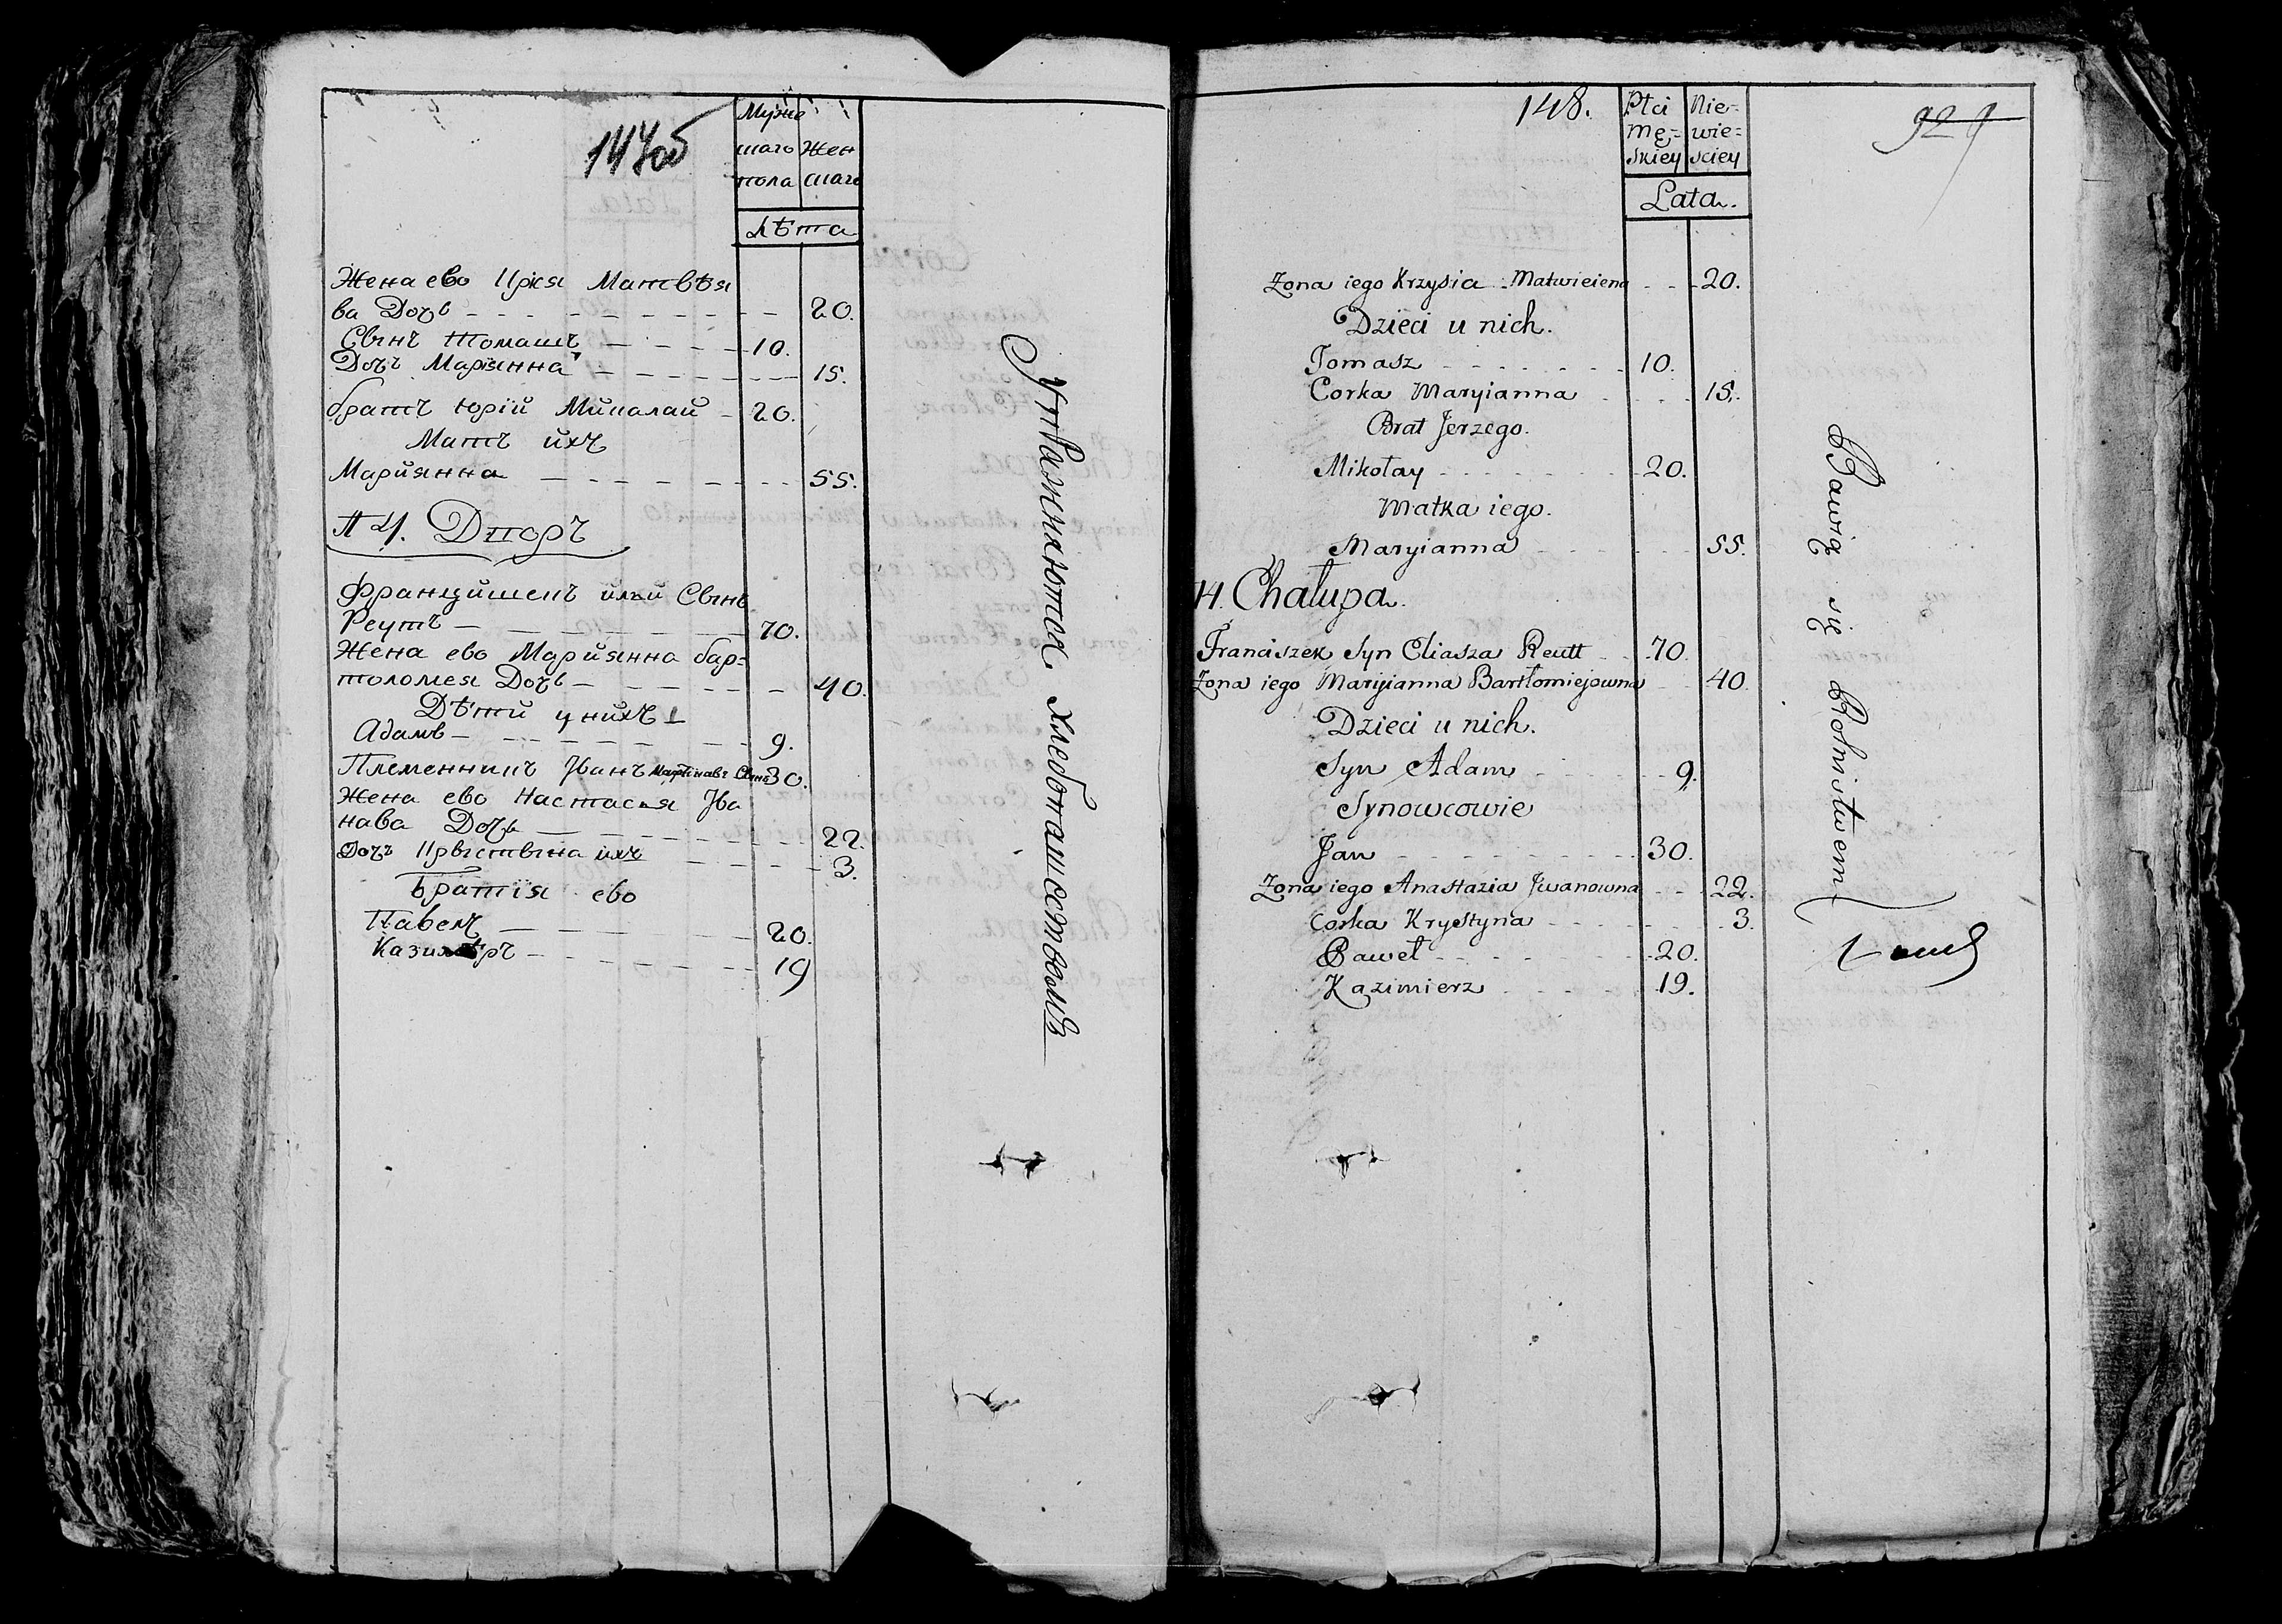 147об
Мужес
каго
пола
Жен
скаго
Лѣта
Жена ево Крся Матвѣя
ва Дочь 20.
Сынъ Томашъ 10.
Дочь Марiянна 15.
братъ Юрiй Миколай 20.
Мать ихъ
Марйянна 55.
14. Дворъ
Францишекъ илiи Сынъ
Реутъ 70.
Жена ево Марйянна бар=
толомея Дочь 40.
Дѣти у нихъ
Адамъ 9.
Племенникъ Иванъ Мартинавъ Сынъ 30.
Жена ево Настасья Ива
нава Дочь 22.
Дочь Крыстына ихъ 3.
Братiя ево
Павелъ 20.
Казимѣръ 19
Упражняются хлебопашествомъ
148.
Płci
mę=
skiey
Nie=
wie=
sciey
Lata.
929
Zona iego Krzysia Matwieiena 20.
Dzieci u nich.
Tomasz 10.
Corka Maryianna 15.
Brat Jerzego.
Mikołay 20.
Matka iego.
Maryianna 55.
14. Chałupa.
Franciszek Syn Eliasza Reutt 70.
Zona iego Maryianna Bartłomiejowna 40.
Dzieci u nich.
Syn Adam 9.
Synowcowie
Jan 30.
Zona iego Anastazia Jwanowna 22.
Corka Krystyna 3.
Paweł 20.
Kazimierz 19.
Bawią się Rolnistwem